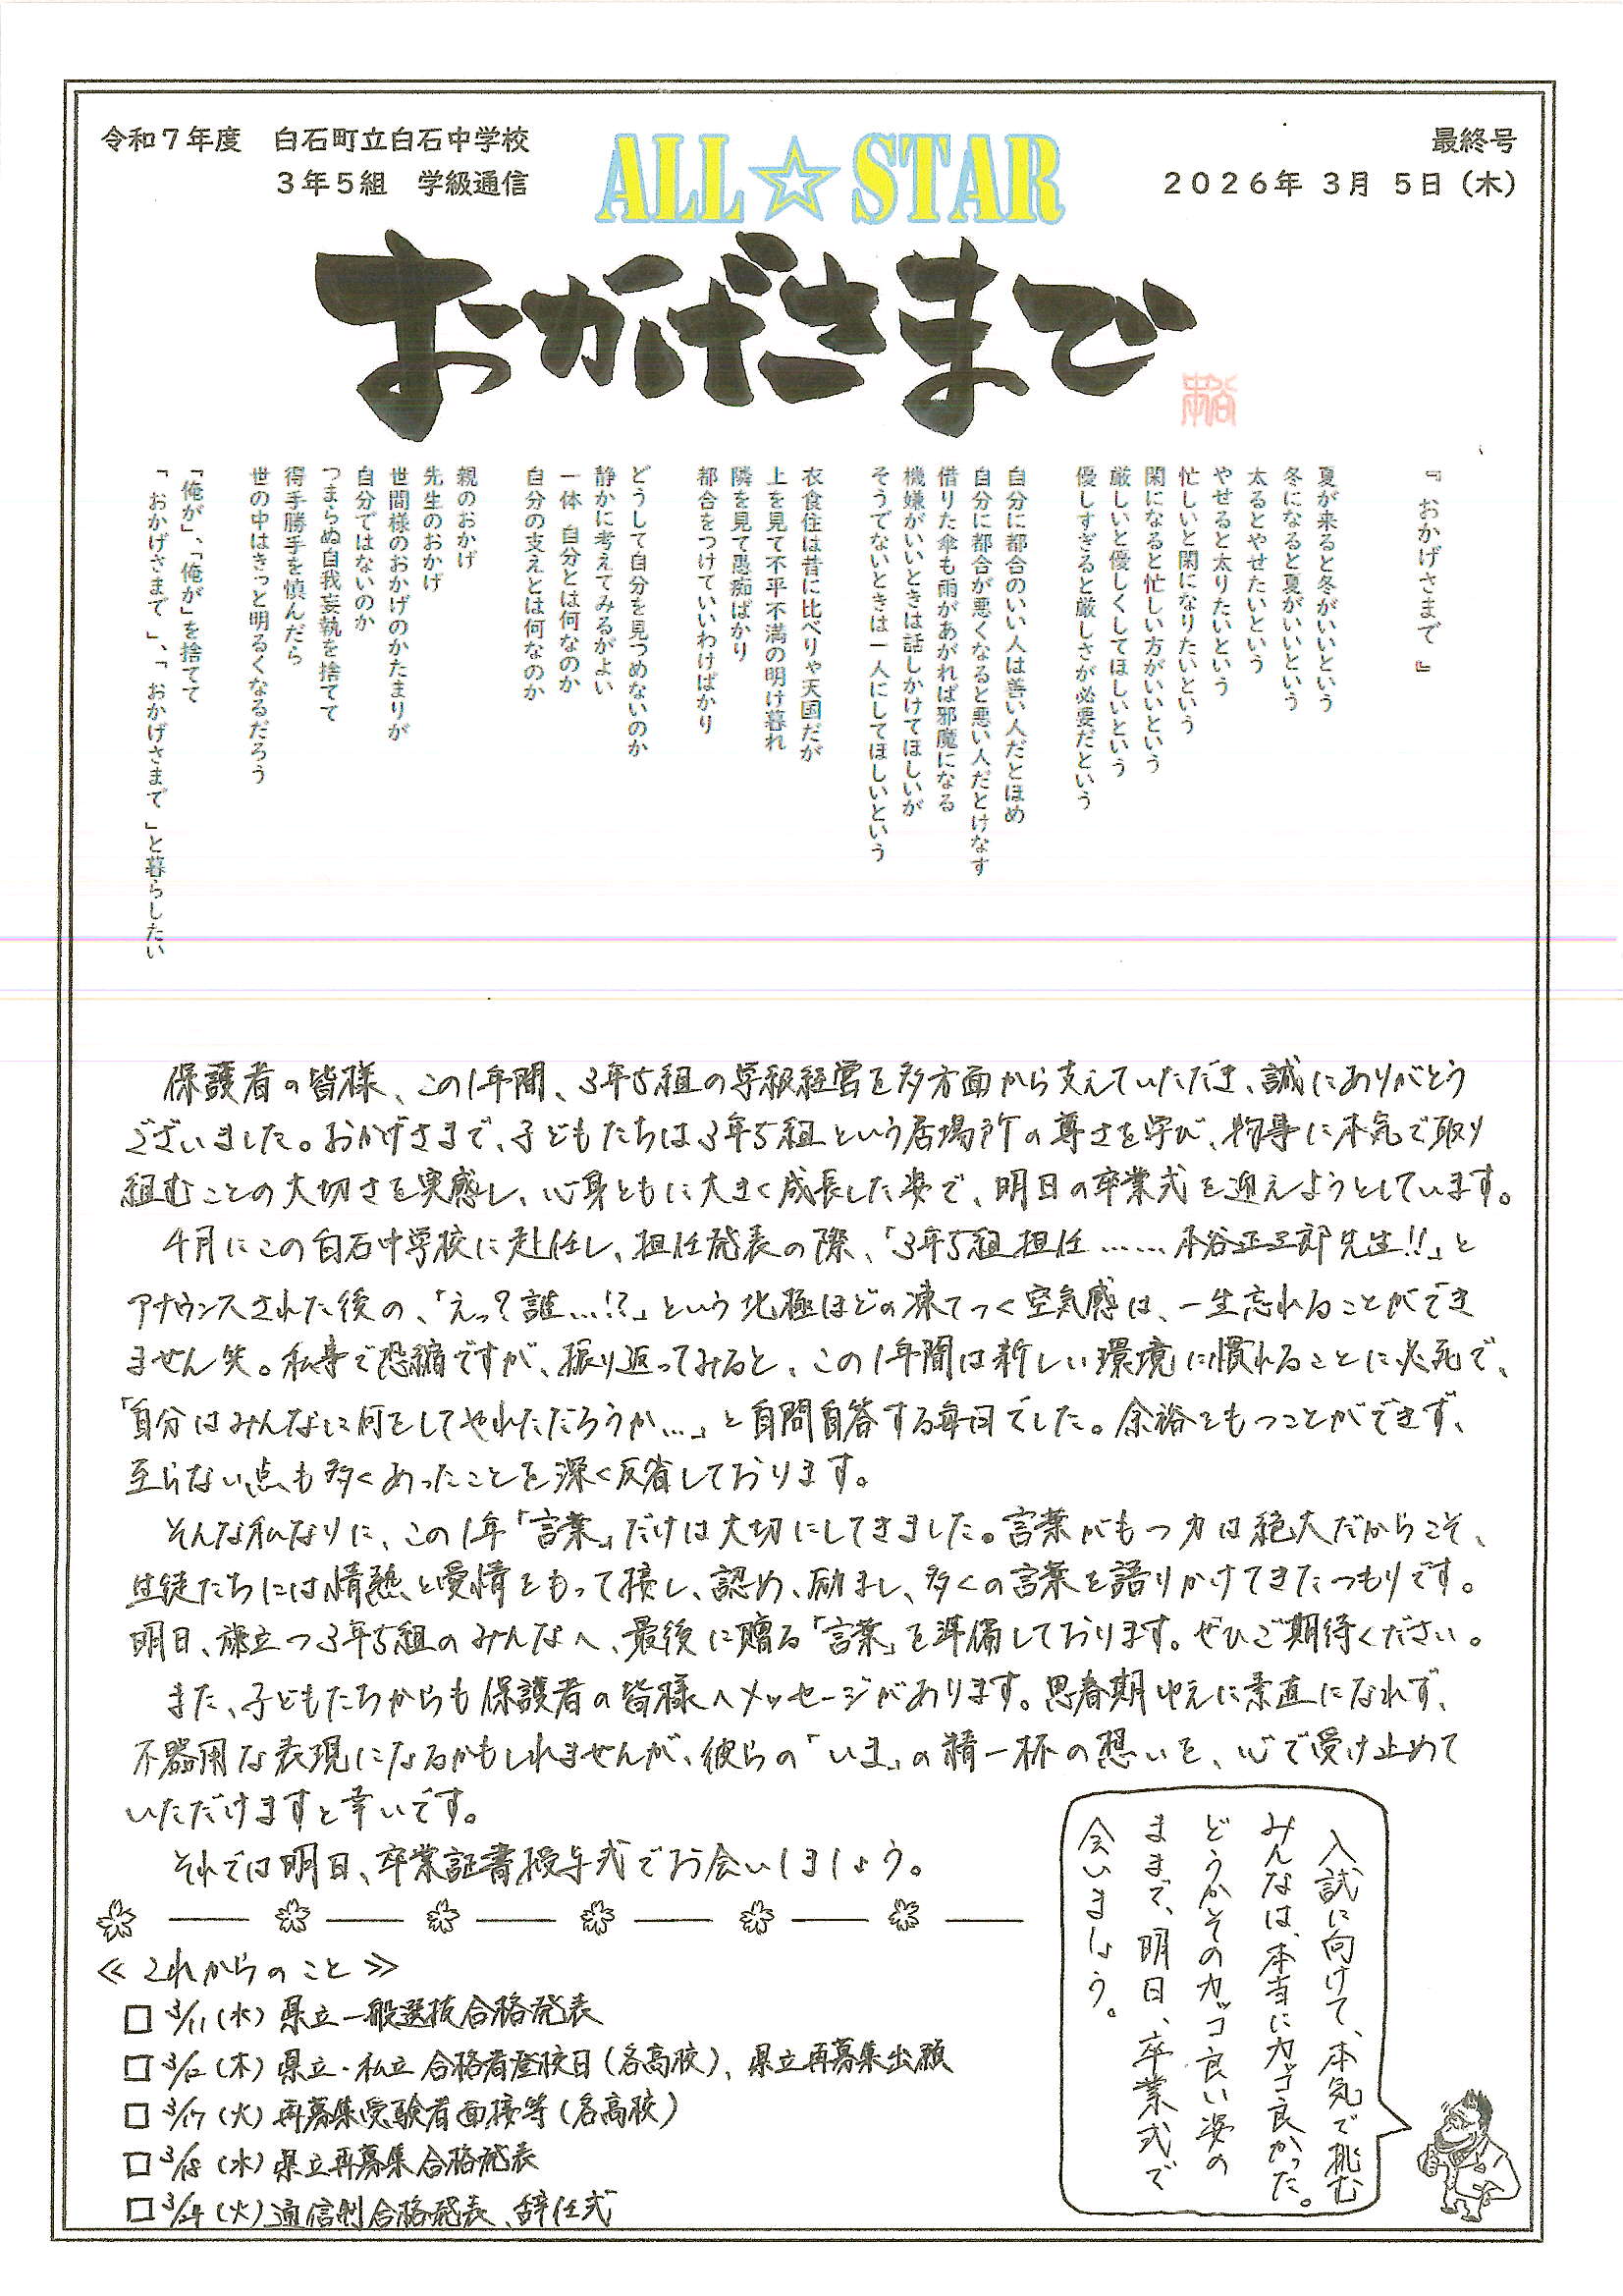 令和７年度　白石町立白石中学校
３年５組　学級通信
ALL☆STAR
最終号
２０２６年 ３月 ５日（木）
おかげさまで
『 おかげさまで 』
夏が来ると冬がいいという
冬になると夏がいいという
太るとやせたいという
やせると太りたいという
忙しいと閑になりたいという
閑になると忙しい方がいいという
厳しいと優しくしてほしいという
優しすぎると厳しさが必要だという
自分に都合のいい人は善い人だとほめ
自分に都合が悪くなると悪い人だとけなす
借りた傘も雨があがれば邪魔になる
機嫌がいいときは話しかけてほしいが
そうでないときは一人にしてほしいという
衣食住は昔に比べりゃ天国だが
上を見て不平不満の明け暮れ
隣を見て愚痴ばかり
都合をつけていいわけばかり
どうして自分を見つめないのか
静かに考えてみるがよい
一体　自分とは何なのか
自分の支えとは何なのか
親のおかげ
先生のおかげ
世間様のおかげのかたまりが
自分ではないのか
つまらぬ自我妄執を捨てて
得手勝手を慎んだら
世の中はきっと明るくなるだろう
「俺が」、「俺が」を捨てて
「 おかげさまで 」、「 おかげさまで 」と暮らしたい
保護者の皆様、この1年間、3年5組の学級経営を多方面から支えていただき、誠にありがとう
ございました。おかげさまで、子どもたちは3年5組という居場所の尊さを学び、物事に本気で取り
組むことの大切さを実感し、心身ともに大きく成長した姿で、明日の卒業式を迎えようとしています。
4月にこの白石中学校に赴任し、担任発表の際、「3年5組担任……本谷正三郎先生!!」と
アナウンスされた後の、「えっ?誰…!?」という北極ほどの凍てつく空気感は、一生忘れることができ
ません笑。私事で恐縮ですが、振り返ってみると、この1年間は新しい環境に慣れることに必死で、
「自分はみんなに何をしてやれただろうか…」と自問自答する毎日でした。余裕をもつことができず、
至らない点も多くあったことを深く反省しております。
そんな私なりに、この1年「言葉」だけは大切にしてきました。言葉がもつ力は絶大だからこそ、
生徒たちには情熱と愛情をもって接し、認め、励まし、多くの言葉を語りかけてきたつもりです。
明日、旅立つ3年5組のみんなへ、最後に贈る「言葉」を準備しております。ぜひご期待ください。
また、子どもたちからも保護者の皆様へメッセージがあります。思春期ゆえに素直になれず、
不器用な表現になるかもしれませんが、彼らの「いま」の精一杯の想いを、心で受け止めて
いただけますと幸いです。
それでは明日、卒業証書授与式でお会いしましょう。
入試に向けて、本気で挑む
みんなは、本当にカッコ良かった。
どうかそのカッコ良い姿の
ままで、明日、卒業式で
会いましょう。
≪これからのこと≫
□ 3/11（水）県立一般選抜合格発表
□ 3/12（木）県立・私立合格者登校日（各高校）、県立再募集出願
□ 3/17（火）再募集受験者面接等（各高校）
□ 3/18（水）県立再募集合格発表
□ 3/24（火）通信制合格発表、辞任式